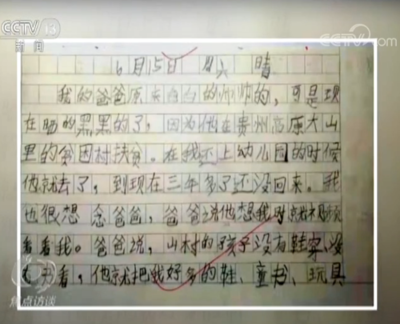 CCTV 13
新闻
CCTV.com
6月15日 周六 晴
我的爸爸原来白白的帅帅的，可是现
在晒的黑黑的了，因为他在贵州高原大山
里的贫困村扶贫。在我还上幼儿园的时候
他就去了，到现在三年多了还没回来。我
也很想念爸爸，爸爸说他想我时就
看看我。爸爸说，山村的孩子没有鞋穿没
有书看，他就把我好多的鞋、童书、玩具
焦点访谈